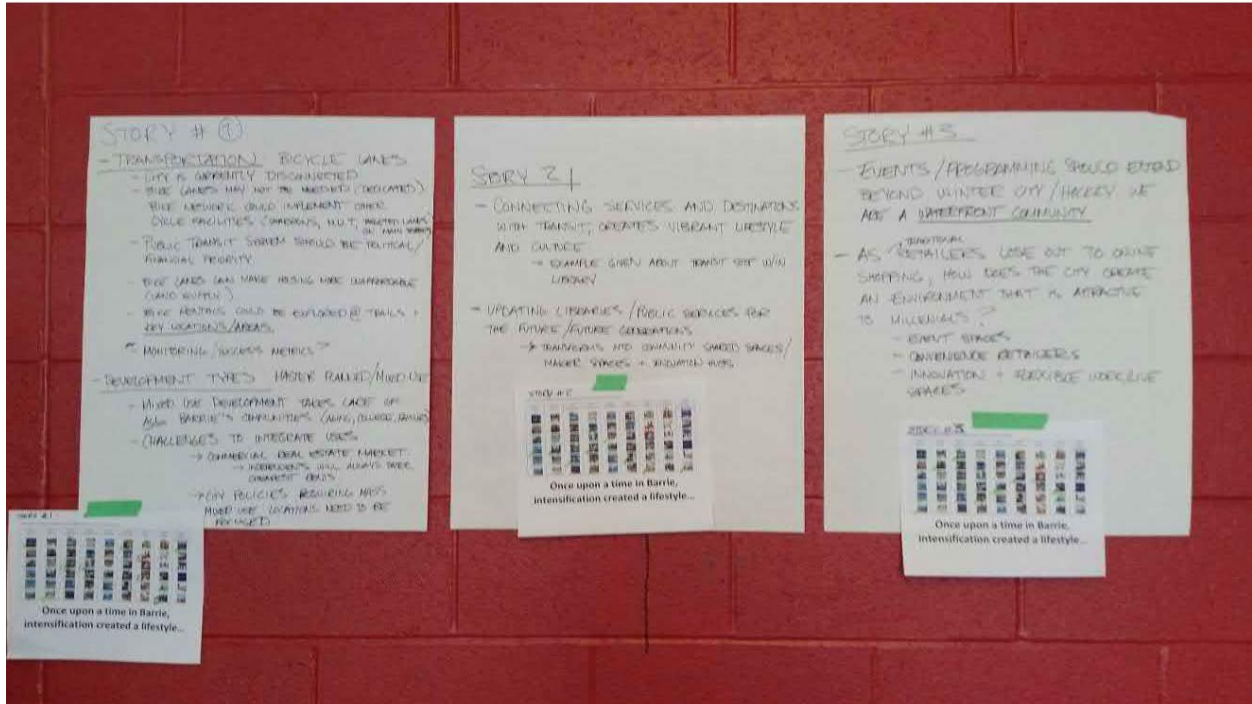 STORY # 1
- TRANSPORTATION BICYCLE LANES
- CITY IS CURRENTLY DISCONNECTED
- BIKE LANES MAY NOT BE NEEDED (DEDICATED)
BIKE NETWORK COULD IMPLEMENT OTHER
CYCLE FACILITIES (SHARROWS, M.U.T,
ON MAIN
- PUBLIC TRANSIT SYSTEM SHOULD BE POLITICAL/
FINANCIAL PRIORITY
- BIKE LANES CAN MAKE HOUSING MORE UNAFFORDABLE
(LAND SUPPLY)
- BIKE RENTALS COULD BE EXPLORED @ TRAILS +
KEY LOCATIONS/AREAS.
MONITORING/SUCCESS METRICS?
- DEVELOPMENT TYPES MASTER PLANNED/MIXED USE
- MIXED USE DEVELOPMENT TAKES CARE OF
BARRIE'S COMMUNITIES (AGING, COLLEGE, FAMILIES)
- CHALLENGES TO INTEGRATE USES
→ COMMERCIAL REAL ESTATE MARKET.
→ INDEPENDENTS WILL ALWAYS
CHEAPEST RENTS
→ CITY POLICIES REQUIRING MASS
MIXED USE LOCATIONS NEED TO BE
FOCUSED
STORY #1
Once upon a time in Barrie,
intensification created a lifestyle...
STORY 2
- CONNECTING SERVICES AND DESTINATIONS
WITH TRANSIT, CREATES VIBRANT LIFESTYLE
AND CULTURE
→ EXAMPLE GIVEN ABOUT TRANSIT STOP W/IN
LIBRARY
- UPDATING LIBRARIES/PUBLIC SERVICES FOR
THE FUTURE/FUTURE GENERATIONS
→ TRANSFORMS INTO COMMUNITY SHARED SPACES/
MAKER SPACES + INNOVATION HUBS
STORY #2
Once upon a time in Barrie,
intensification created a lifestyle...
STORY #3
- EVENTS/PROGRAMMING SHOULD EXTEND
BEYOND WINTER CITY/HOCKEY WE
ARE A WATERFRONT COMMUNITY
- AS TRADITIONAL RETAILERS LOSE OUT TO ONLINE
SHOPPING, HOW DOES THE CITY CREATE
AN ENVIRONMENT THAT IS ATTRACTIVE
TO MILLENIALS?
- EVENT SPACES
- CONVENIENCE RETAILERS
- INNOVATION + FLEXIBLE WORK/LIVE
SPACES
STORY #3
Once upon a time in Barrie,
intensification created a lifestyle...